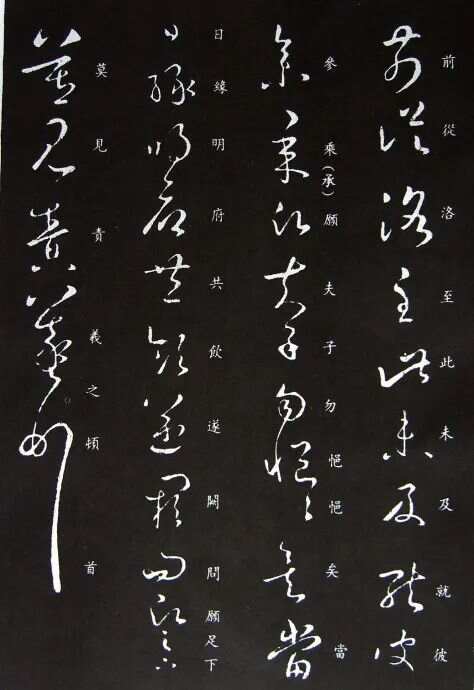 前從洛至此未及就彼
參乘(承)願夫子勿悒悒矣當
日緣明府共飲遂闕問願足下
莫見責羲之頓首